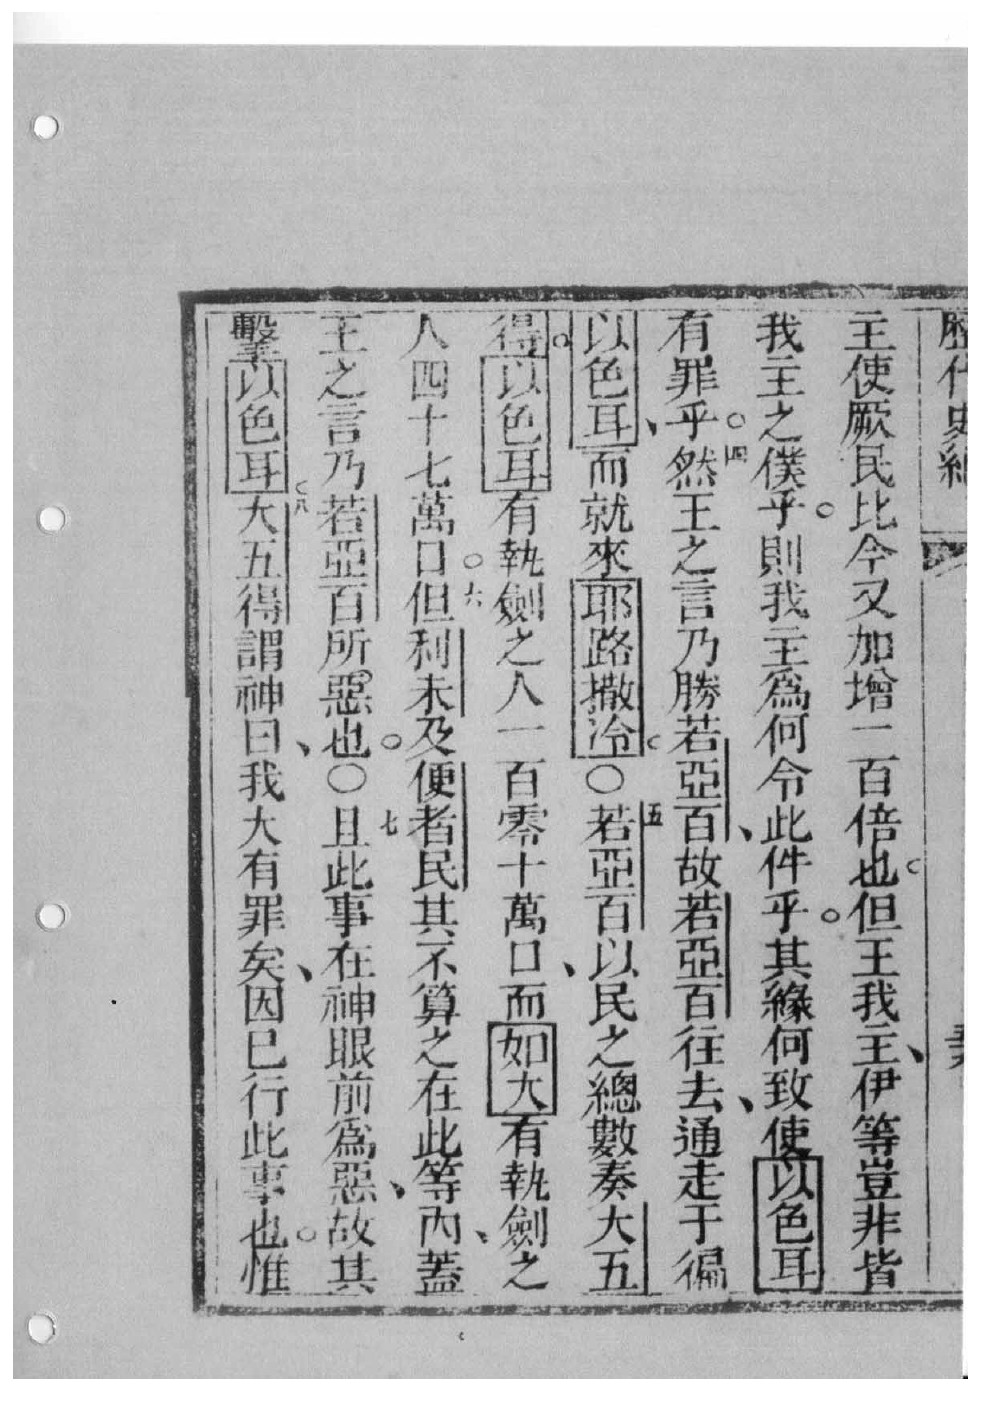 歷代史紀
主使厥民比今又加增一百倍也但王我主伊等豈非皆
我主之僕乎則我主爲何令此件乎其緣何致使以色耳
有罪乎四然王之言乃勝若亞百故若亞百往去通走于徧
以色耳而就來耶路撒冷○五若亞百以民之總數奏大五
得以色耳有執劍之人一百零十萬口而如大有執劍之
人四十七萬口六但利未及便者民其不算之在此等內蓋
王之言乃若亞百所惡也○七且此事在神眼前爲惡故其
擊以色耳八大五得謂神曰我大有罪矣因已行此事也惟